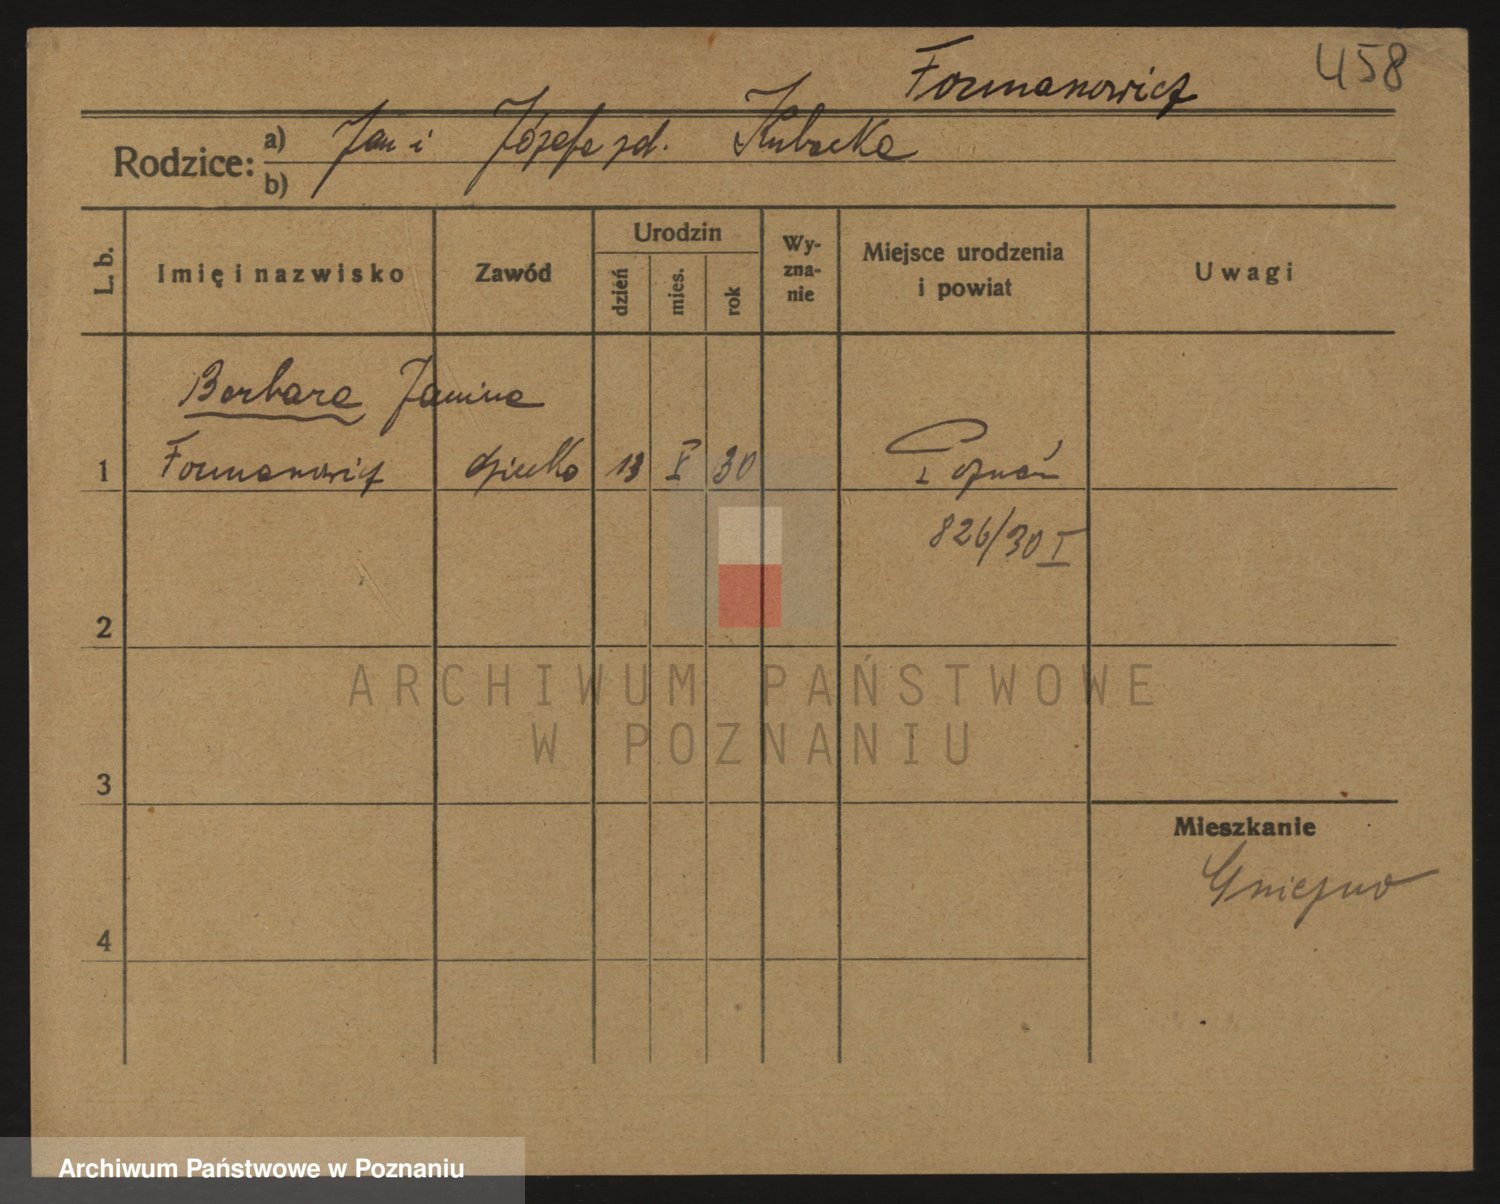 458
Formanowicz
Rodzice: a) Jan i Józefa zd. Kubacka
b)
L. b. Imię i nazwisko Zawód Urodzin dzień mies. rok Wyzna-nie Miejsce urodzenia i powiat Uwagi
Barbara Janina
1 Formanowicz dziecko 13 X 30 Poznań
826/30 I
2
ARCHIWUM PAŃSTWOWE
W POZNANIU
3
Mieszkanie
Gniezno
4
Archiwum Państwowe w Poznaniu